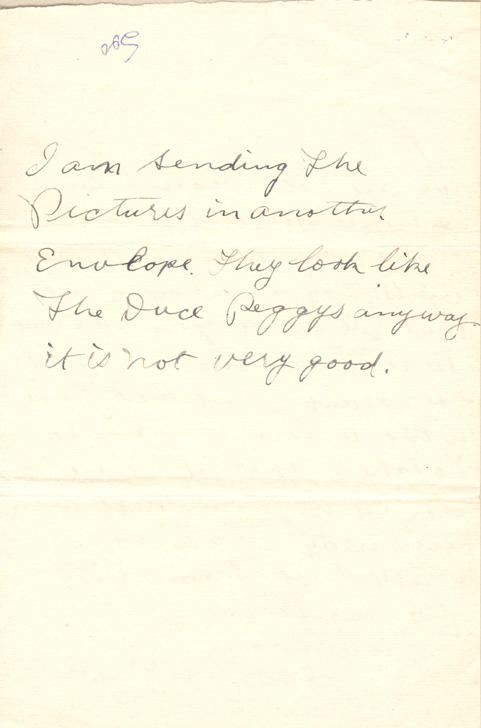 I am sending The
Pictures in another
Envelope. They look like
The Duce Peggys anyway
it is not very good.